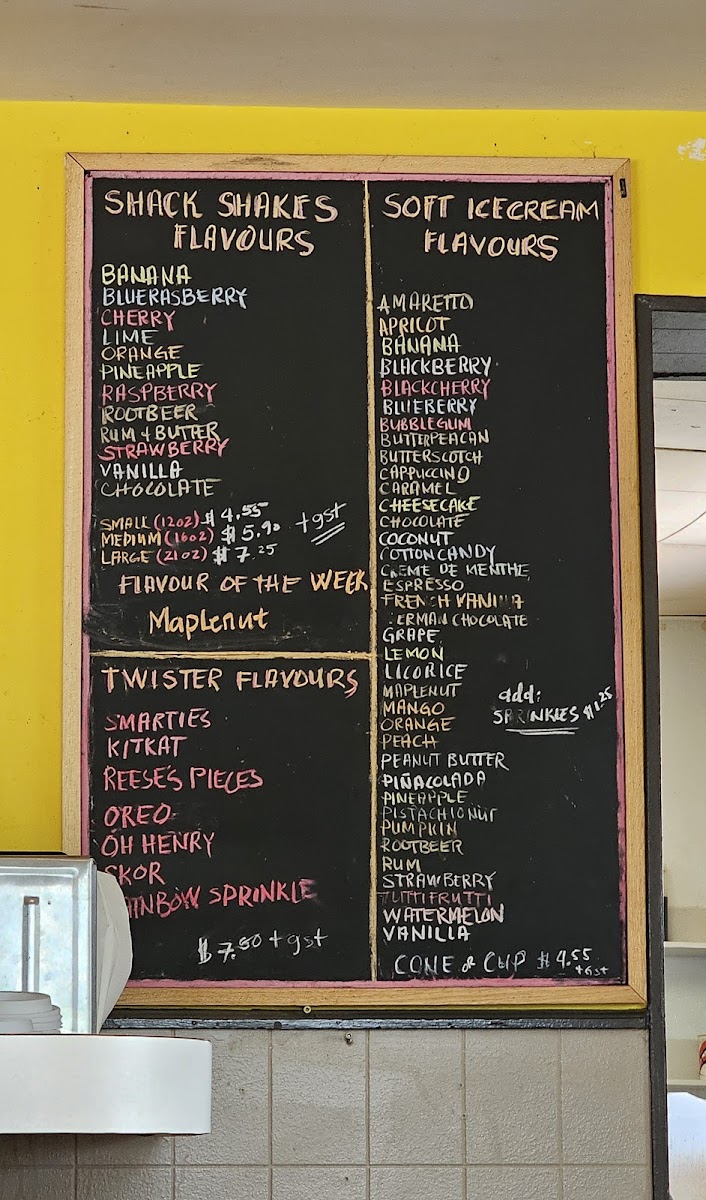 SHACK SHAKES
FLAVOURS
BANANA
BLUERASBERRY
CHERRY
LIME
ORANGE
PINEAPPLE
RASPBERRY
ROOTBEER
RUM & BUTTER
STRAWBERRY
VANILLA
CHOCOLATE
SMALL (12OZ) $ 4.55
MEDIUM (16OZ) $ 5.90 + gst
LARGE (21OZ) $ 7.25
FLAVOUR OF THE WEEK
Maplenut
TWISTER FLAVOURS
SMARTIES
KITKAT
REESE'S PIECES
OREO
OH HENRY
SKOR
RAINBOW SPRINKLE
$ 7.80 + gst
SOFT ICECREAM
FLAVOURS
AMARETTO
APRICOT
BANANA
BLACKBERRY
BLACKCHERRY
BLUEBERRY
BUBBLEGUM
BUTTERPEACAN
BUTTERSCOTCH
CAPPUCCINO
CARAMEL
CHEESECAKE
CHOCOLATE
COCONUT
COTTON CANDY
CREME DE MENTHE
ESPRESSO
FRENCH VANILLA
ERMAN CHOCOLATE
GRAPE
LEMON
LICORICE
MAPLENUT
MANGO
ORANGE
PEACH
PEANUT BUTTER
PIÑACOLADA
PINEAPPLE
PISTACHIONUT
PUMPKIN
ROOTBEER
RUM
STRAWBERRY
TUTTIFRUTTI
WATERMELON
VANILLA
add:
SPRINKLES $1.25
CONE & CUP $ 4.55
+ GST